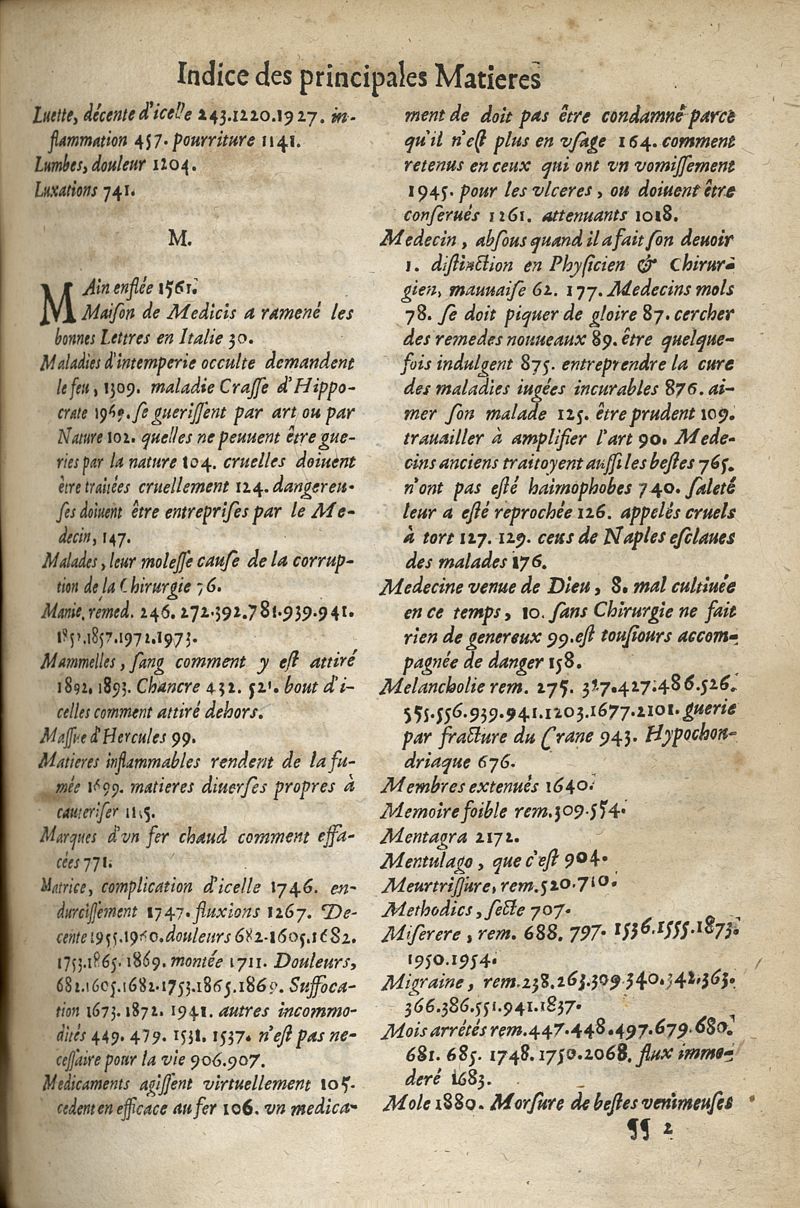 Indice des principales Matieres
Luette, décente d'icelle 243.1220.1927. in-
flammation 457. pourriture 1141.
Lumbes, douleur 1204.
Luxations 741.
M.
MAin enflée 1561.
Maiſon de Medicis a ramené les
bonnes Lettres en Italie 30.
Maladies d'intemperie occulte demandent
le feu, 1309. maladie Craſſe d'Hippo-
crate 1969. ſe gueriſſent par art ou par
Nature 102. quelles ne peuuent être gue-
ries par la nature 104. cruelles doiuent
être traitées cruellement 124. dangereu-
ſes doiuent être entrepriſes par le Me-
decin, 147.
Malades, leur moleſſe cauſe de la corrup-
tion de la Chirurgie 76.
Manie, remed. 246. 272.392.781.939.941.
1857.1972.1973.
Mammelles, ſang comment y eſt attiré
1892. 1893. Chancre 432. bout d'i-
celles comment attiré dehors.
Maſſue d'Hercules 99.
Matieres inflammables rendent de la fu-
mée 1699. matieres diuerſes propres à
cauteriſer
Marques d'vn fer chaud comment effa-
cées 771.
Matrice, complication d'icelle 1746. en-
durciſſement 1747. fluxions 1267. De-
cente 1955.1960. douleurs 682.1605.1682.
1753.1865.1869. montée 1711. Douleurs,
682.1605.1682.1753.1865.1869. Suffoca-
tion 1673. 1872. 1941. autres incommo-
dités 449. 479. 1531. 1537. n'eſt pas ne-
ceſſaire pour la vie 906.907.
Medicaments agiſſent virtuellement 105.
cedent en efficace au fer 106. vn medica-
ment de doit pas être condamné parce
qu'il n'eſt plus en vſage 164. comment
retenus en ceux qui ont vn vomiſſement
1945. pour les vlceres, ou doiuent être
conſerués 1261. attenuants 1018.
Medecin, abſous quand il a fait ſon deuoir
1. diſtinction en Phyſicien & Chirur-
gien, mauuaiſe 62. 177. Medecins mols
78. ſe doit piquer de gloire 87. cercher
des remedes nouueaux 89. être quelque-
fois indulgent 875. entreprendre la cure
des maladies iugées incurables 876. ai-
mer ſon malade 125. être prudent 109.
trauailler à amplifier l'art 90. Mede-
cins anciens traitoyent auſſi les beſtes 765.
n'ont pas eſté haimophobes 740. ſaleté
leur a eſté reprochée 126. appelés cruels
à tort 127. 129. ceus de Naples eſclaues
des malades 176.
Medecine venue de Dieu, 8. mal cultiuée
en ce temps, 10. ſans Chirurgie ne fait
rien de genereux 99. eſt touſiours accom-
pagnée de danger 158.
Melancholie rem. 275. 317.427.486.526.
555.556.939.941.1203.1677.2101. guerie
par fracture du Crane 943. Hypochon-
driaque 676.
Membres extenués 1640.
Memoire foible rem. 309.554.
Mentagra 2172.
Mentulago, que c'eſt 904.
Meurtriſſure, rem. 520.710.
Methodics, ſecte 707.
Miſerere, rem. 688. 797. 1536.1555.1873.
1950.1954.
Migraine, rem. 238.263.309.340.342.363.
366.386.551.941.1837.
Mois arrétés rem. 447.448.497.679.680.
681. 685. 1748.1750.2068. flux immo-
deré 1683.
Mole 1880. Morſure de beſtes venimeuſes
¶¶ 2